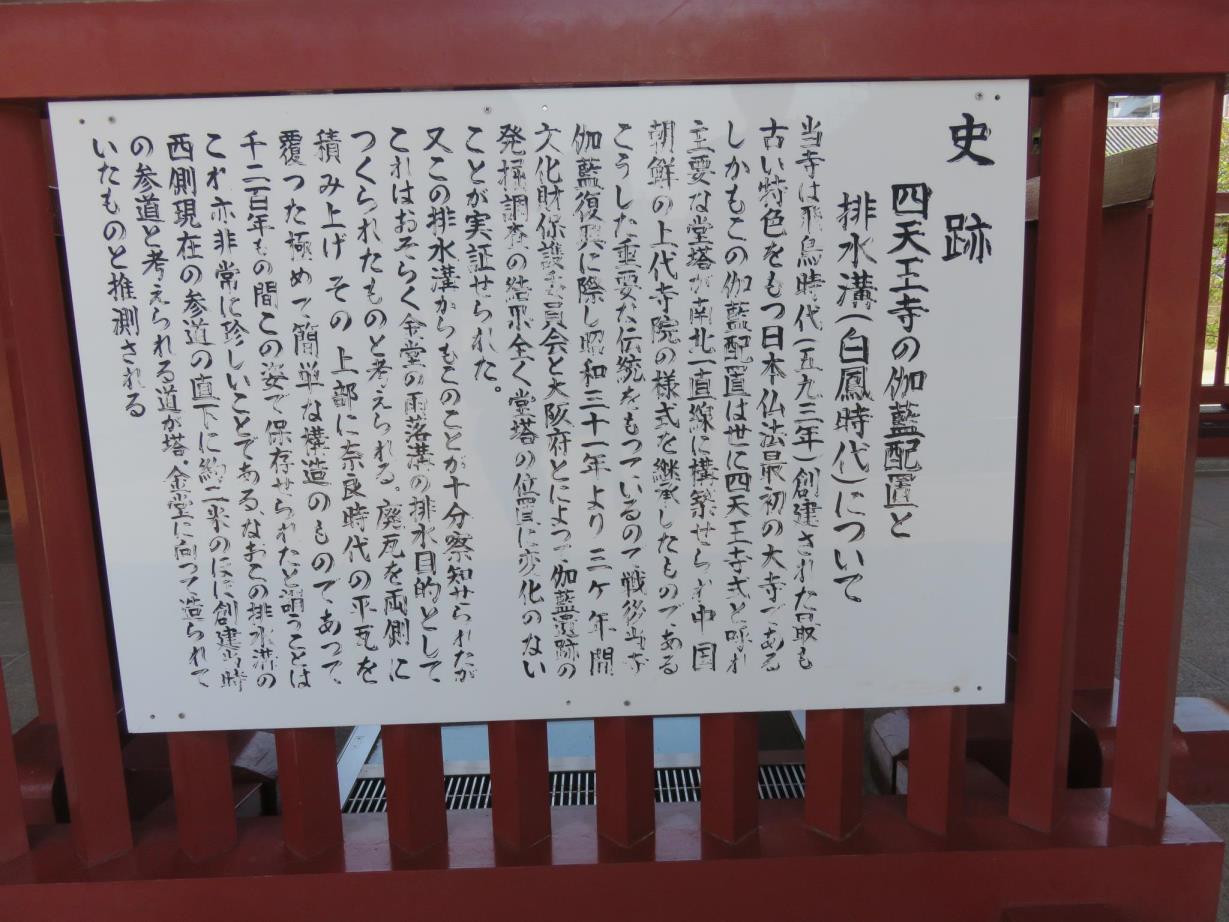 史跡
四天王寺の伽藍配置と
排水溝(白鳳時代)について
当寺は飛鳥時代(五九三年)創建された最も
古い特色をもつ日本仏法最初の大寺である
しかもこの伽藍配置は世に四天王寺式と呼れ
主要な堂塔が南北一直線に構築せられ中国
朝鮮の上代寺院の様式を継承したものである
こうした重要な伝統をもっているので戦後当寺
伽藍復興に際し昭和三十一年より三ケ年間
文化財保護委員会と大阪府とによって伽藍遺跡の
発掘調査の結果全く堂塔の位置に変化のない
ことが実証せられた。
又この排水溝からもこのことが十分察知せられたが
これはおそらく金堂の雨落溝の排水目的として
つくられたものと考えられる。廃瓦を両側に
積み上げその上部に奈良時代の平瓦を
覆つた極めて簡単な構造のものであって、
千二三百年もの間この姿で保存せられたと謂うことは
これ亦非常に珍しいことである、なおこの排水溝の
西側現在の参道の直下に約二米の に創建当時
の参道と考えられる道が塔、金堂に向つて造られて
いたものと推測される